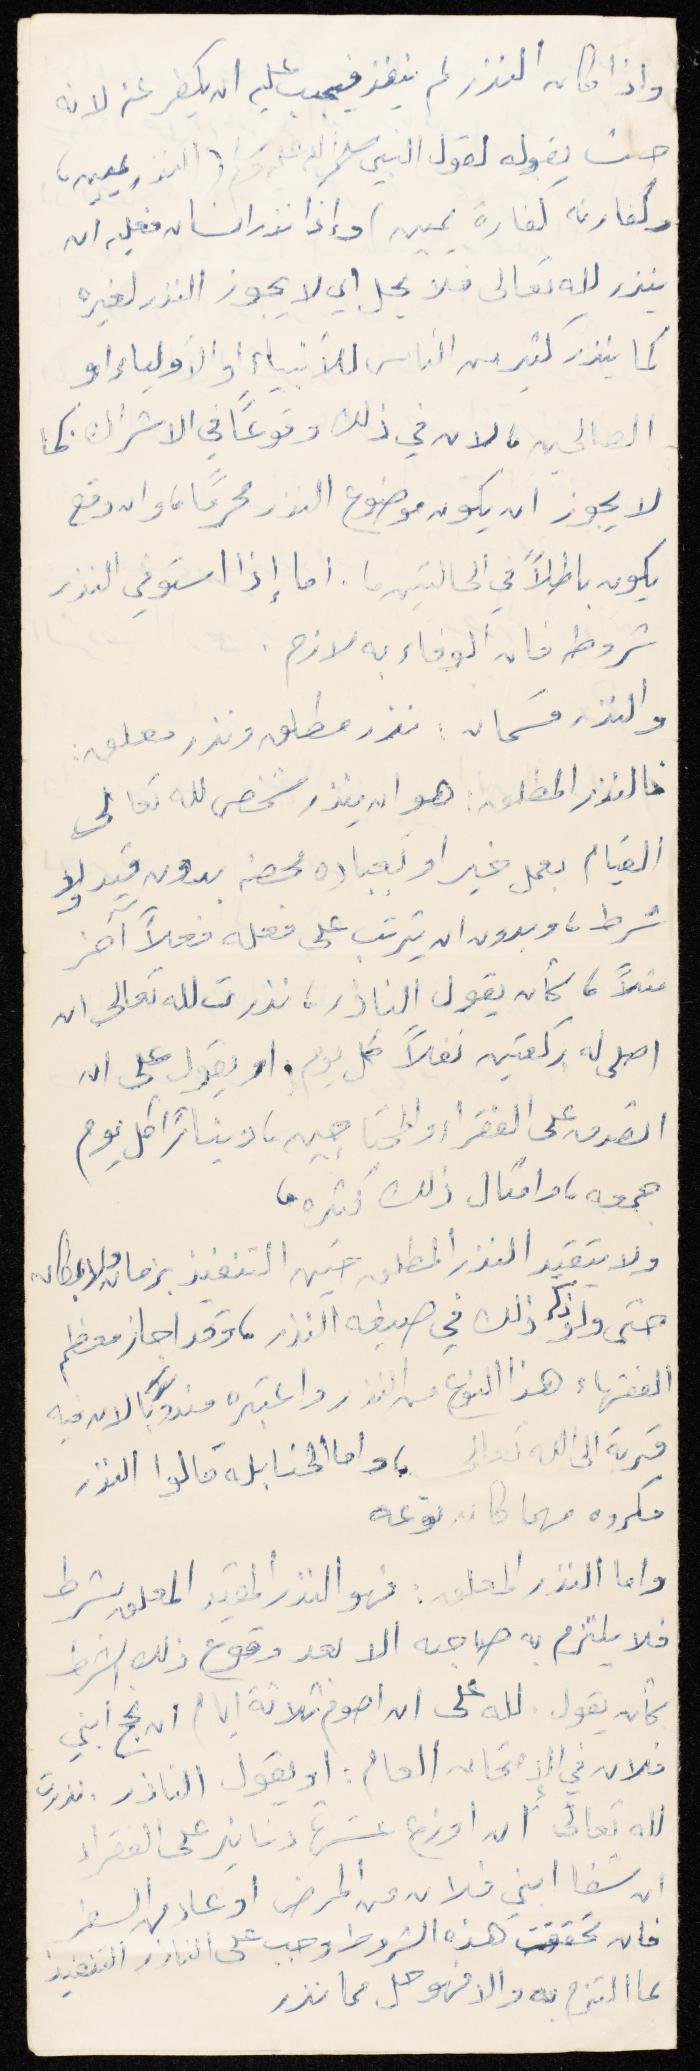 واذا كان النذر لم ينفذ فيجب عليه ان يكفر عنه لانه
حنث بقوله لقول النبي صلى الله عليه وسلم (النذر يمين،
وكفارته كفارة يمين) وإذا نذر انسان فعليه ان
ينذر لله تعالى فلا يحل اي لا يجوز النذر لغيره
كما ينذر كثير من الناس للأنبياء او الأولياء او
الصالحين، لان في ذلك وقوعاً في الاشراك. كما
لا يجوز ان يكون موضوع النذر محرمًا، وان وقع
يكون باطلاً في الحالتين. اما إذا استوفى النذر
شروطه فان الوفاء به لازم.
والنذر قسمان: نذر مطلق ونذر معلق:
فالنذر المطلق: هو ان ينذر شخص لله تعالى
القيام بعمل خير او بعباده محضه بدون قيد ولا
شرط، وبدون ان يترتب على فعله فعلاً آخر
مثلاً، كأن يقول الناذر، نذرت لله تعالى ان
اصلي له ركعتين نفلاً كل يوم. او يقول على ان
اتصدق على الفقراء والمحتاجين، دينارًا كل يوم
جمعه، وامثال ذلك كثره،
ولا يتقيد النذر المطلق حين التنفيذ بزمان ولا بمكان
حتى ولو ذكر ذلك في صيغه النذر، وقد اجاز معظم
الفقهاء هذا النوع من النذر واعتبره مندوبًا لان فيه
قربة الى الله تعالى، واما الحنابله قالوا النذر
مكروه مهما كان نوعه
واما النذر المعلق: فهو النذر المقيد المعلق بشرط
فلا يلتزم به صاحبه الا بعد وقوع ذلك الشرط
كأن يقول. لله على ان اصوم ثلاثة ايام ان نجح ابني
فلان في الإمتحان العام: او يقول الناذر. نذرت
لله تعالى ان اوزع عشرة دنانير على الفقراء
ان شفا ابني فلان من المرض او عاد من السفر
فان تحققت هذه الشروط وجب على الناذر التنفيذ
بما التزم به والا فهو حل مما نذر